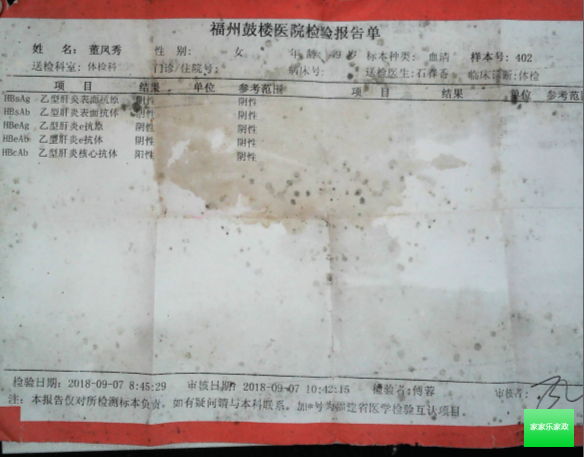 福州鼓楼医院检验报告单
姓 名: 董风秀 性 别: 女 年 龄: 49岁 标本种类: 血清 样本号: 402
送检科室: 体检科 门诊/住院号: 病床号: 送检医生: 石春香 临床诊断: 体检
项 目 结果 单位 参考范围 项 目 结果 单位 参考范围
HBsAg 乙型肝炎表面抗原 阴性 阴性
HBsAb 乙型肝炎表面抗体 阴性 阴性
HBeAg 乙型肝炎e抗原 阴性 阴性
HBeAb 乙型肝炎e抗体 阴性 阴性
HBcAb 乙型肝炎核心抗体 阳性 阴性
检验日期: 2018-09-07 8:45:29 审核日期: 2018-09-07 10:42:15 检验者: 傅蓉 审核者:
注: 本报告仅对所检测标本负责, 如有疑问请与本科联系, 加*号为福建省医学检验互认项目.
家家乐家政